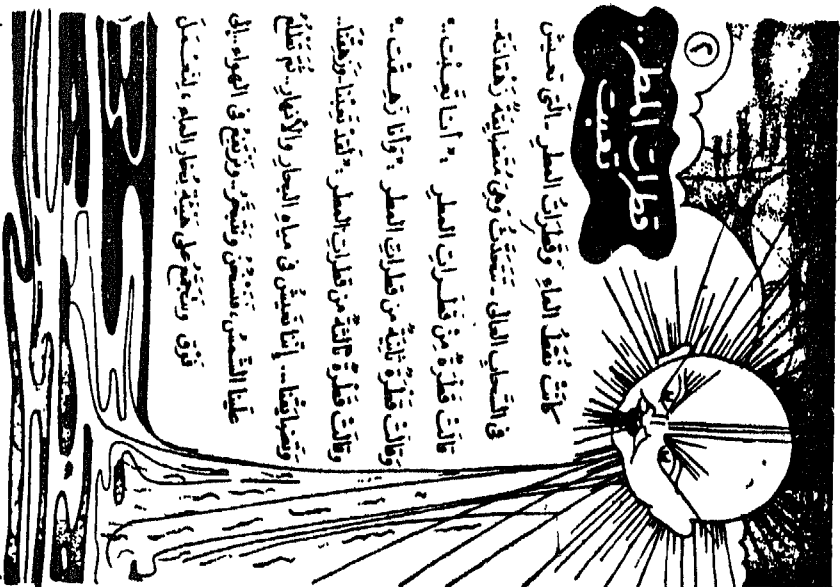 ٢
قطرات المطر..
تعبت
كانت نقط الماء وقطرات المطر - التى تعيش
فى السحاب العالى - تتحدث وهى متضايقة زهقانة..
قالت قطرة من قطرات المطر : « أنا تعبت ..»
وقالت قطرة ثانية من قطرات المطر : « وأنا زهقت ..»
وقالت قطرة ثالثة من قطرات المطر : « لقد تعبنا وزهقنا..
وتضايقنا ... إننا نعيش فى مياه البحار والأنهار .. ثم تطلع
علينا الشمس ، فنسخن ونتبخر .. ونرتفع فى الهواء .. إلى
فوق ونتجمع على هيئة بخار الماء ، لتعمل